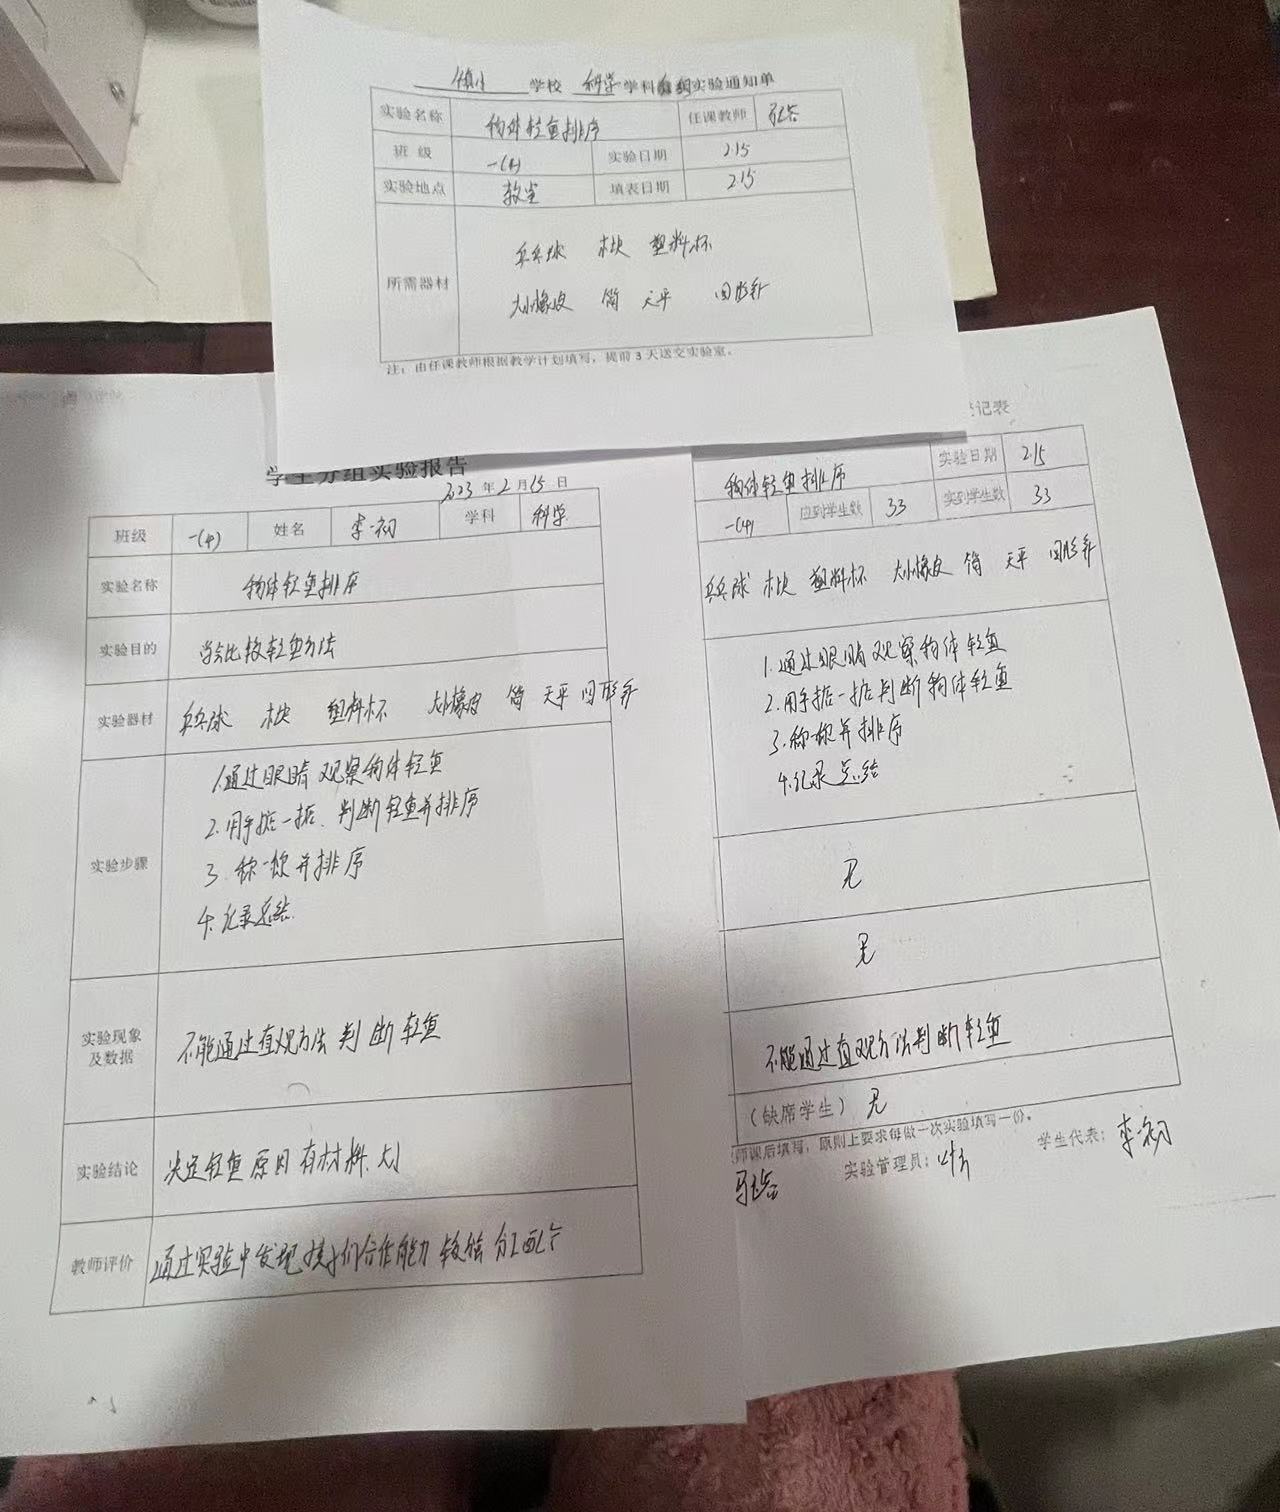 镇小 学校 科学 学科分组实验通知单
实验名称 物体轻重排序 任课教师
班 级 一(4) 实验日期 2.15
实验地点 教室 填表日期 2.15
所需器材 乒乓球 木块 塑料杯
大小橡皮 筒 天平 回形针
注：由任课教师根据教学计划填写，提前 3 天送交实验室。
学生分组实验报告
2023 年 2 月 15 日
班级 一(4) 姓名 李一初 学科 科学
实验名称 物体轻重排序
实验目的 学会比较轻重方法
实验器材 乒乓球 木块 塑料杯 大小橡皮 筒 天平 回形针
实验步骤 1.通过眼睛观察物体轻重
2.用手掂一掂.判断轻重并排序
3.称一称并排序
4.记录总结.
实验现象及数据 不能通过直观方法判断轻重
实验结论 决定轻重原因有材料.大小
教师评价 通过实验中发现孩子们合作能力较
登记表
物体轻重排序 实验日期 2.15
一(4) 应到学生数 33 实到学生数 33
乒乓球 木块 塑料杯 大小橡皮 筒 天平 回形针
1.通过眼睛观察物体轻重
2.用手掂一掂判断物体轻重
3.称一称并排序
4.记录总结
无
无
不能通过直观方法判断轻重
（缺席学生） 无
师课后填写，原则上要求每做一次实验填写一份。
实验管理员： 学生代表：李一初